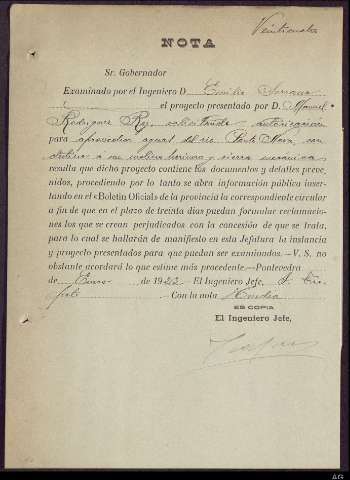 Veinticuatro
NOTA
Sr. Gobernador
Examinado por el Ingeniero D. Emilio
el proyecto presentado por D. Manuel
Rodriguez Rey, solicitando autorización
para aprovechar aguas del río
molino harinero y sierra mecánica
resulta que dicho proyecto contiene los documentos y detalles preve-
nidos, procediendo por lo tanto se abra información pública inser-
tando en el «Boletín Oficial» de la provincia la correspondiente circular
a fin de que en el plazo de treinta días puedan formular reclamacio-
nes los que se crean perjudicados con la concesión de que se trata,
para lo cual se hallarán de manifiesto en esta Jefatura la instancia
y proyecto presentados para que puedan ser examinados.—V. S. no
obstante acordará lo que estime más procedente.—Pontevedra
de Enero de 1942 El Ingeniero Jefe,
Con la nota
ES COPIA
El Ingeniero Jefe,